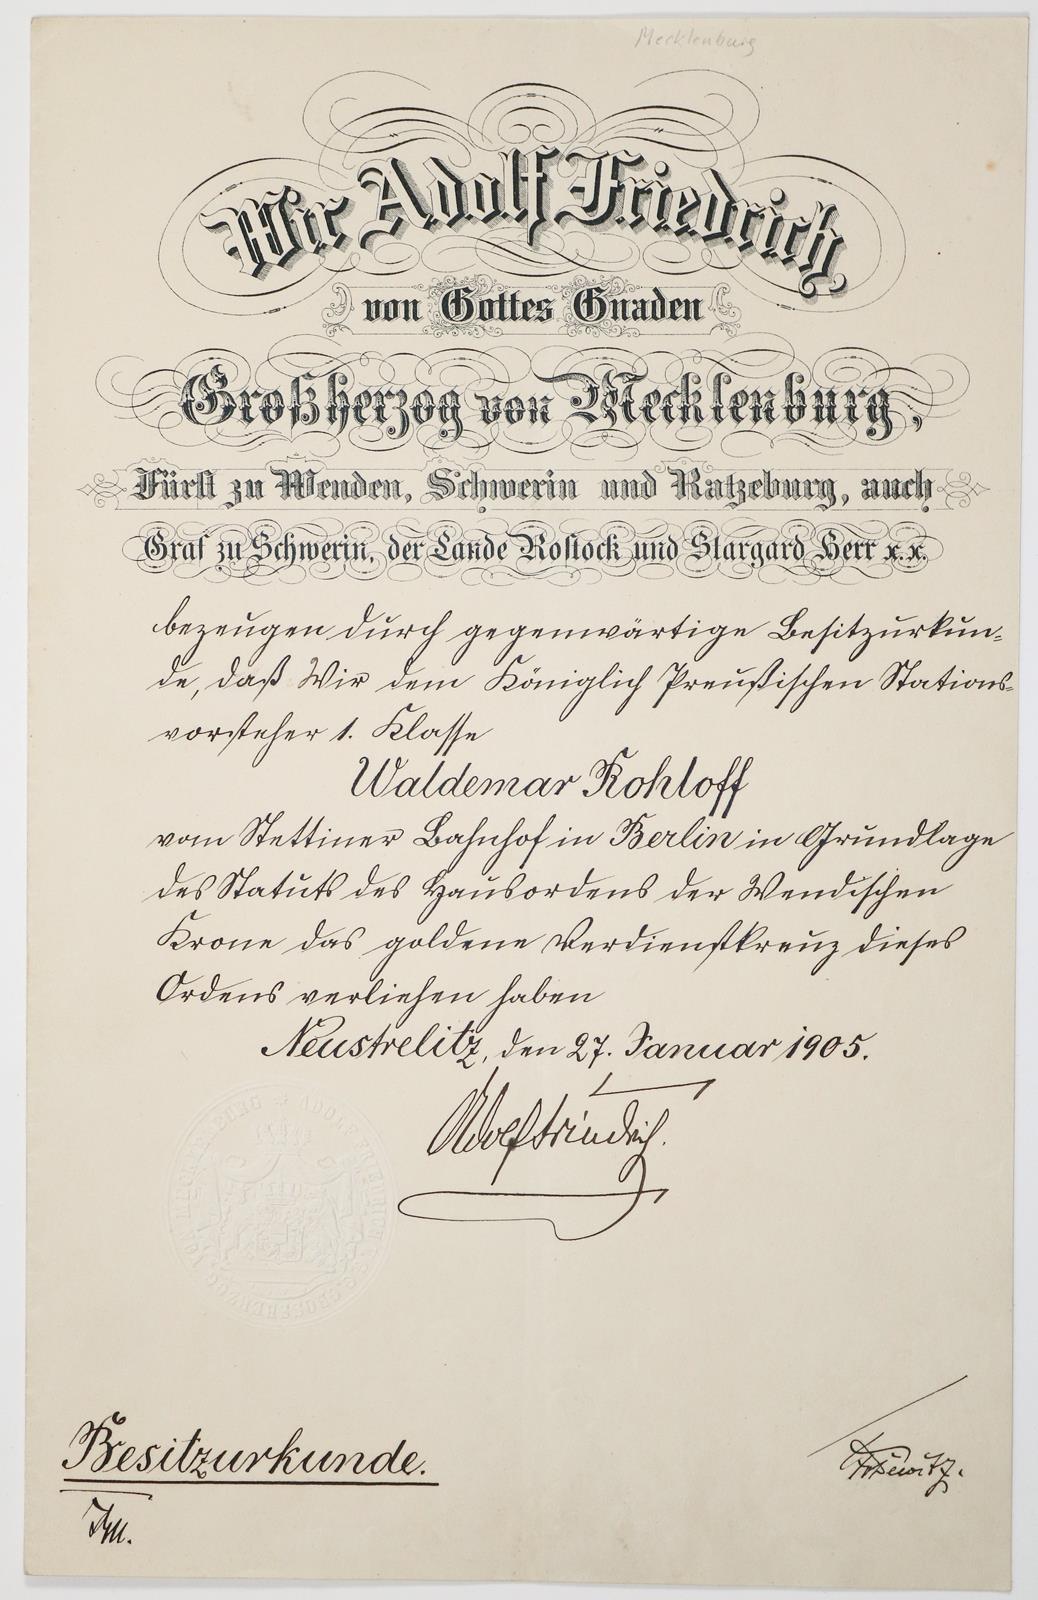 Mecklenburg
Wir Adolf Friedrich
von Gottes Gnaden
Großherzog von Mecklenburg,
Fürst zu Wenden, Schwerin und Ratzeburg, auch
Graf zu Schwerin, der Lande Rostock und Stargard Herr x.x.
bezeugen durch gegenwärtige Besitzurkun-
de, daß Wir dem Königlich Preußischen Stations-
vorsteher 1. Klasse
Waldemar Rohloff
vom Stettiner Bahnhof in Berlin in Grundlage
des Statuts des Hausordens der Wendischen
Krone das goldene Verdienstkreuz dieses
Ordens verliehen haben
Neustrelitz, den 27. Januar 1905.
Adolf Friedrich.
Besitzurkunde.